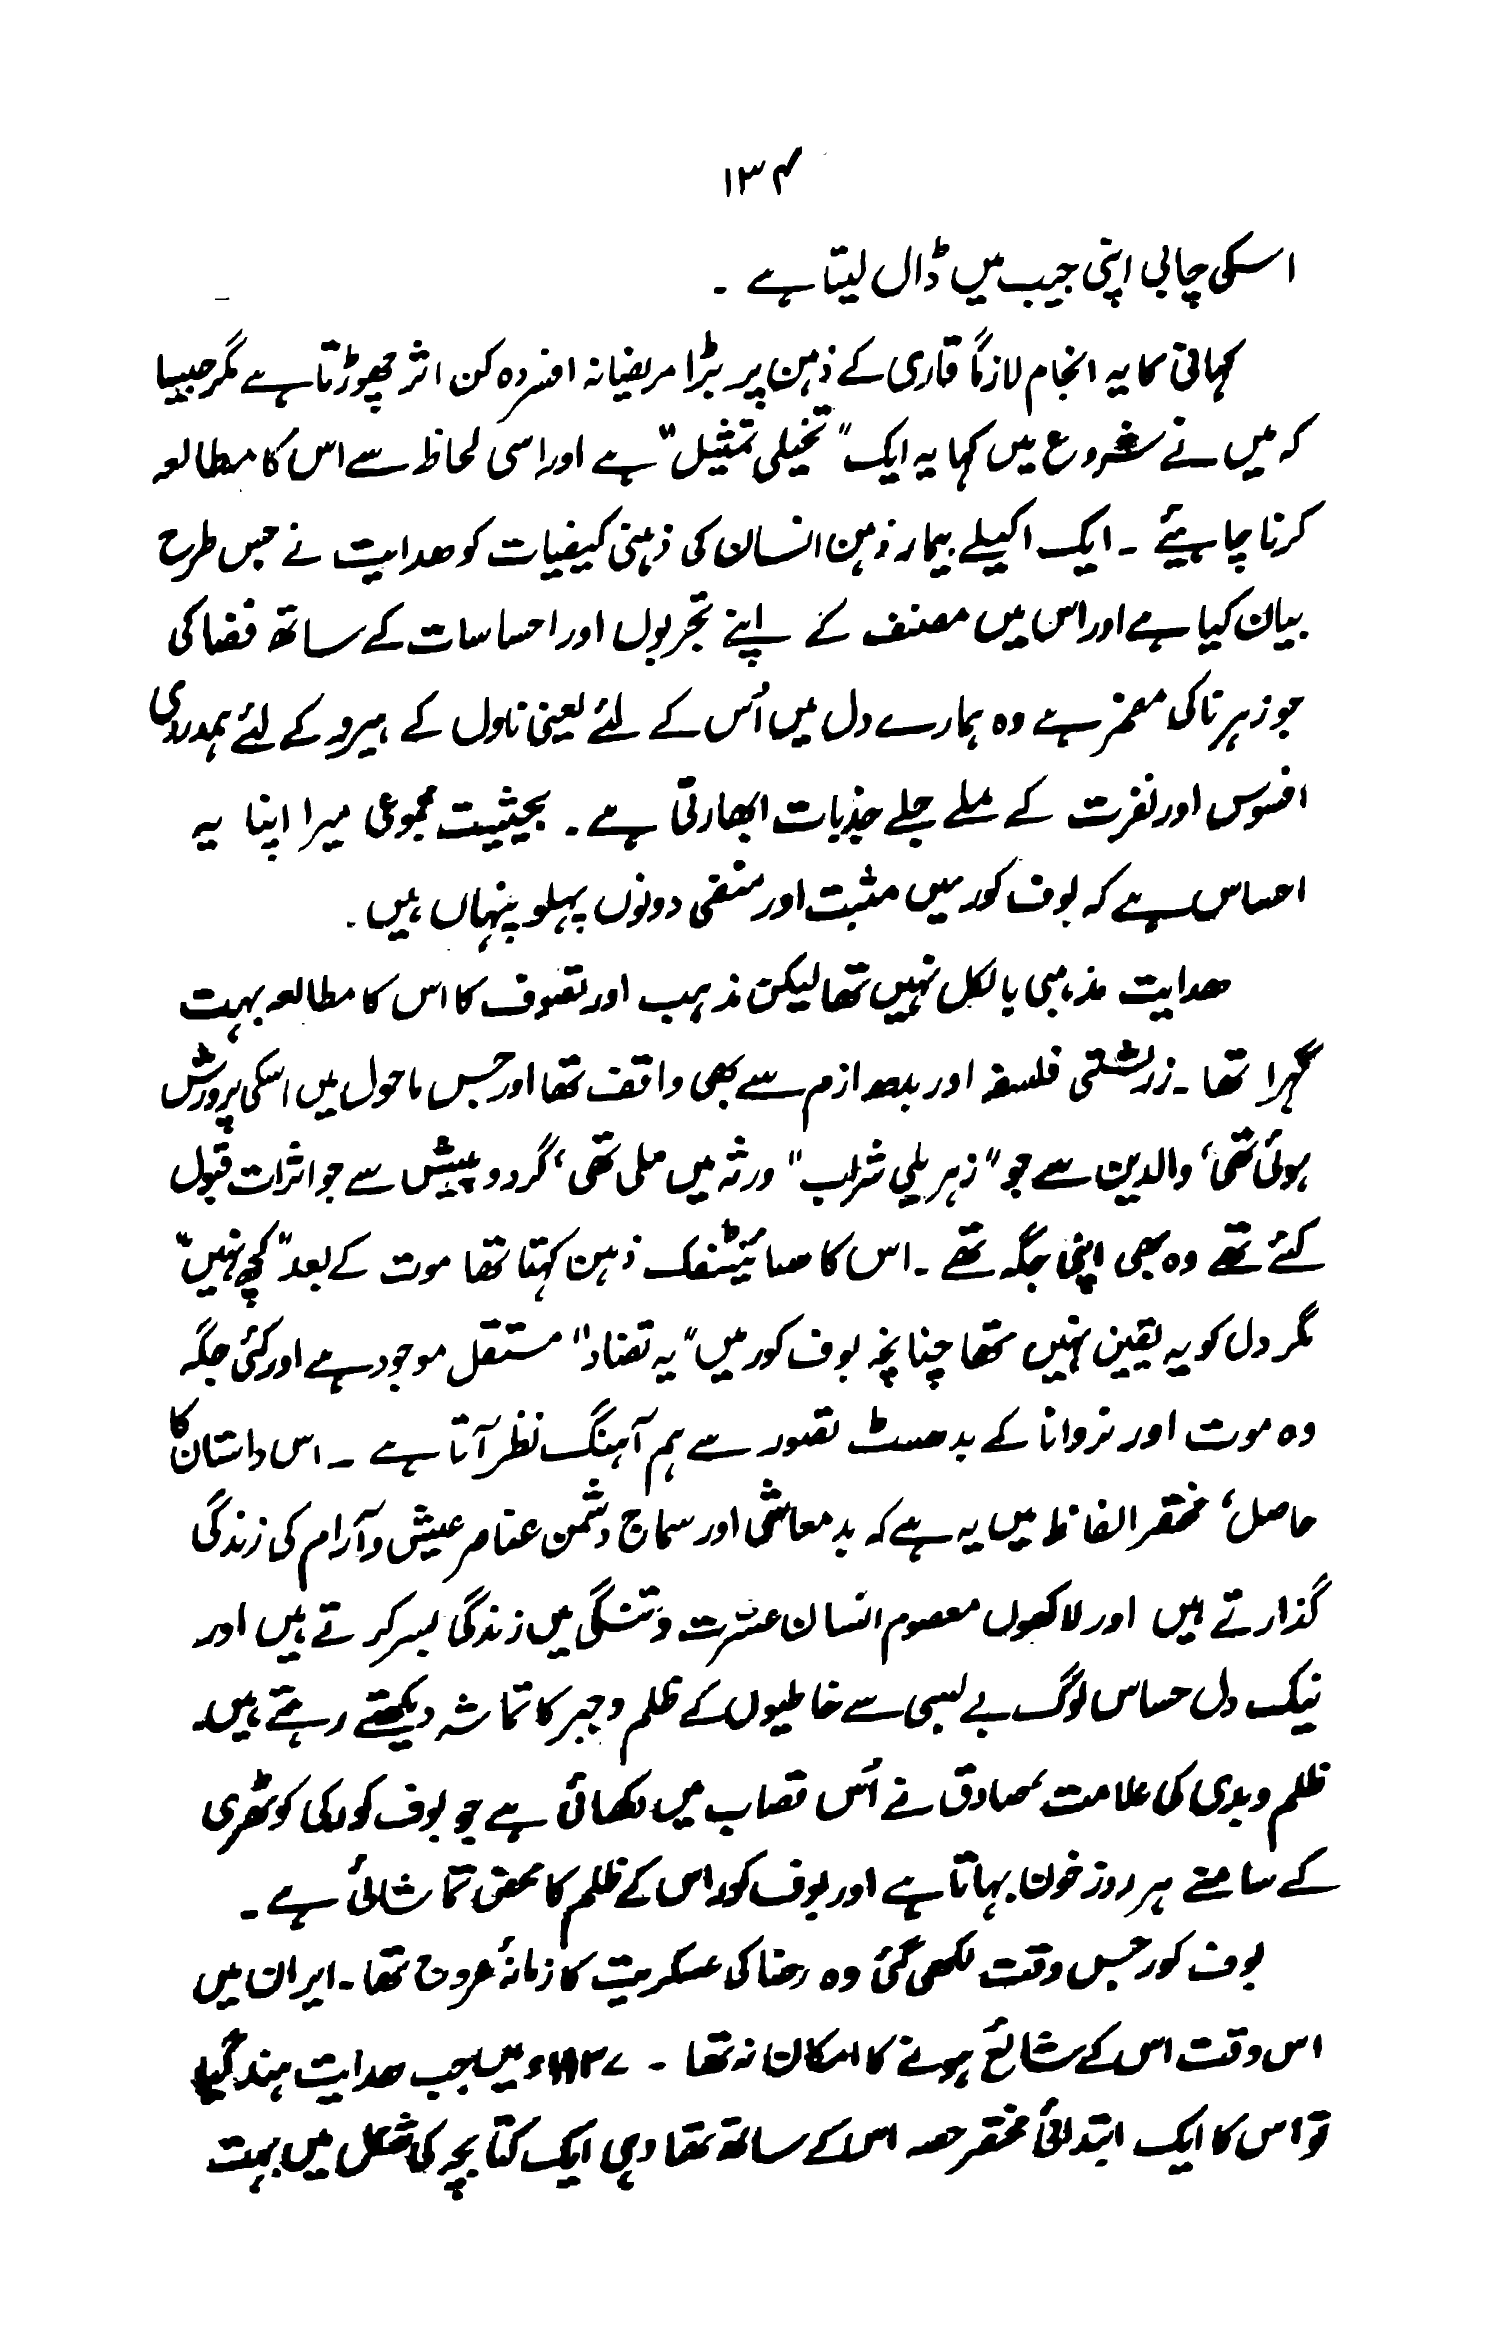 ۱۳۴
اسکی چابی اپنی جیب میں ڈال لیتا ہے ۔
کہانی کا یہ انجام لازماً قاری کے ذہن پر بڑا مریضانہ افسردہ کن اثر چھوڑتا ہے مگر جیسا
کہ میں نے شروع میں کہا یہ ایک "تخیلی تمثیل" ہے اور اسی لحاظ سے اس کا مطالعہ
کرنا چاہیئے ۔ ایک اکیلے بیمار ذہن انسان کی ذہنی کیفیات کو ھدایت نے جس طرح
بیان کیا ہے اور اس میں مصنف کے اپنے تجربوں اور احساسات کے ساتھ فضا کی
جو زہر ناکی مضمر ہے وہ ہمارے دل میں اُس کے لئے یعنی ناول کے ہیرو کے لئے ہمدردی
افسوس اور نفرت کے ملے جلے جذبات ابھارتی ہے ۔ بحیثیت مجموعی میرا اپنا یہ
احساس ہے کہ بوف کور میں مثبت اور منفی دونوں پہلو پنہاں ہیں ۔
ھدایت مذہبی بالکل نہیں تھا لیکن مذہب اور تصوف کا اس کا مطالعہ بہت
گہرا تھا ۔ زرتشتی فلسفہ اور بدھ ازم سے بھی واقف تھا اور جس ماحول میں اسکی پرورش
ہوئی تھی، والدین سے جو "زہریلی شراب" ورثہ میں ملی تھی، گرد و پیش سے جو اثرات قبول
کئے تھے وہ بھی اپنی جگہ تھے ۔ اس کا سائنٹفک ذہن کہتا تھا موت کے بعد "کچھ نہیں"
مگر دل کو یہ یقین نہیں تھا چنانچہ بوف کور میں "یہ تضاد" مستقل موجود ہے اور کئی جگہ
وہ موت اور نروانا کے بدھسٹ تصور سے ہم آہنگ نظر آتا ہے ۔ اس داستان کا
حاصل، مختصر الفاظ میں یہ ہے کہ بد معاش اور سماج دشمن عناصر عیش و آرام کی زندگی
گذارتے ہیں اور لاکھوں معصوم انسان عسرت و تنگی میں زندگی بسر کرتے ہیں اور
نیک دل حساس لوگ بے بسی سے خاطیوں کے ظلم و جبر کا تماشہ دیکھتے رہتے ہیں۔
ظلم و بدی کی علامت صادق نے اُس قصاب میں دکھائی ہے جو بوف کور کی کوٹھری
کے سامنے ہر روز خون بہاتا ہے اور بوف کور اس کے ظلم کا محض تماشائی ہے ۔
بوف کور جس وقت لکھی گئی وہ رضا کی عسکریت کا زمانۂ عروج تھا ۔ ایران میں
اس وقت اس کے شائع ہونے کا امکان نہ تھا ۔ ۱۹۳۷ء میں جب ھدایت ہند گیا
تو اس کا ایک ابتدائی مختصر حصہ اس کے ساتھ تھا وہی ایک کتابچہ کی شکل میں بہت